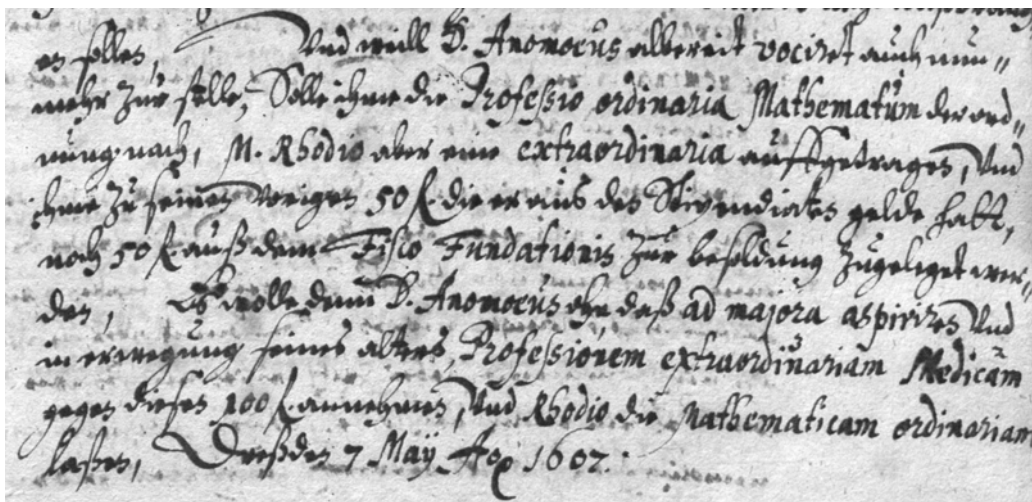 es sollen, Und weill D. Anomoeus albereit vociret auch nun„
mehr zur stelle, Solle ihme die Professio ordinaria Mathematum der ord„
nung nach, M. Rhodio aber eine extraordinaria auffgetragen, Und
ihme zu seinen vorigen 50 f. die er aus des Stipendiaten gelde hatt,
noch 50 f. auß dem Fisco Fundationis zur besoldung zugeleget wer„
den, Es wolle dann D. Anomoeus ohn daß ad majora aspiriren Und
in erwegung seines alters, Professionem extraordinariam Medicam
gegen diesen 100 f. annehmen, Und Rhodio die Mathematicam ordinariam
laßen, Dreßden 7 May Ao 1607.